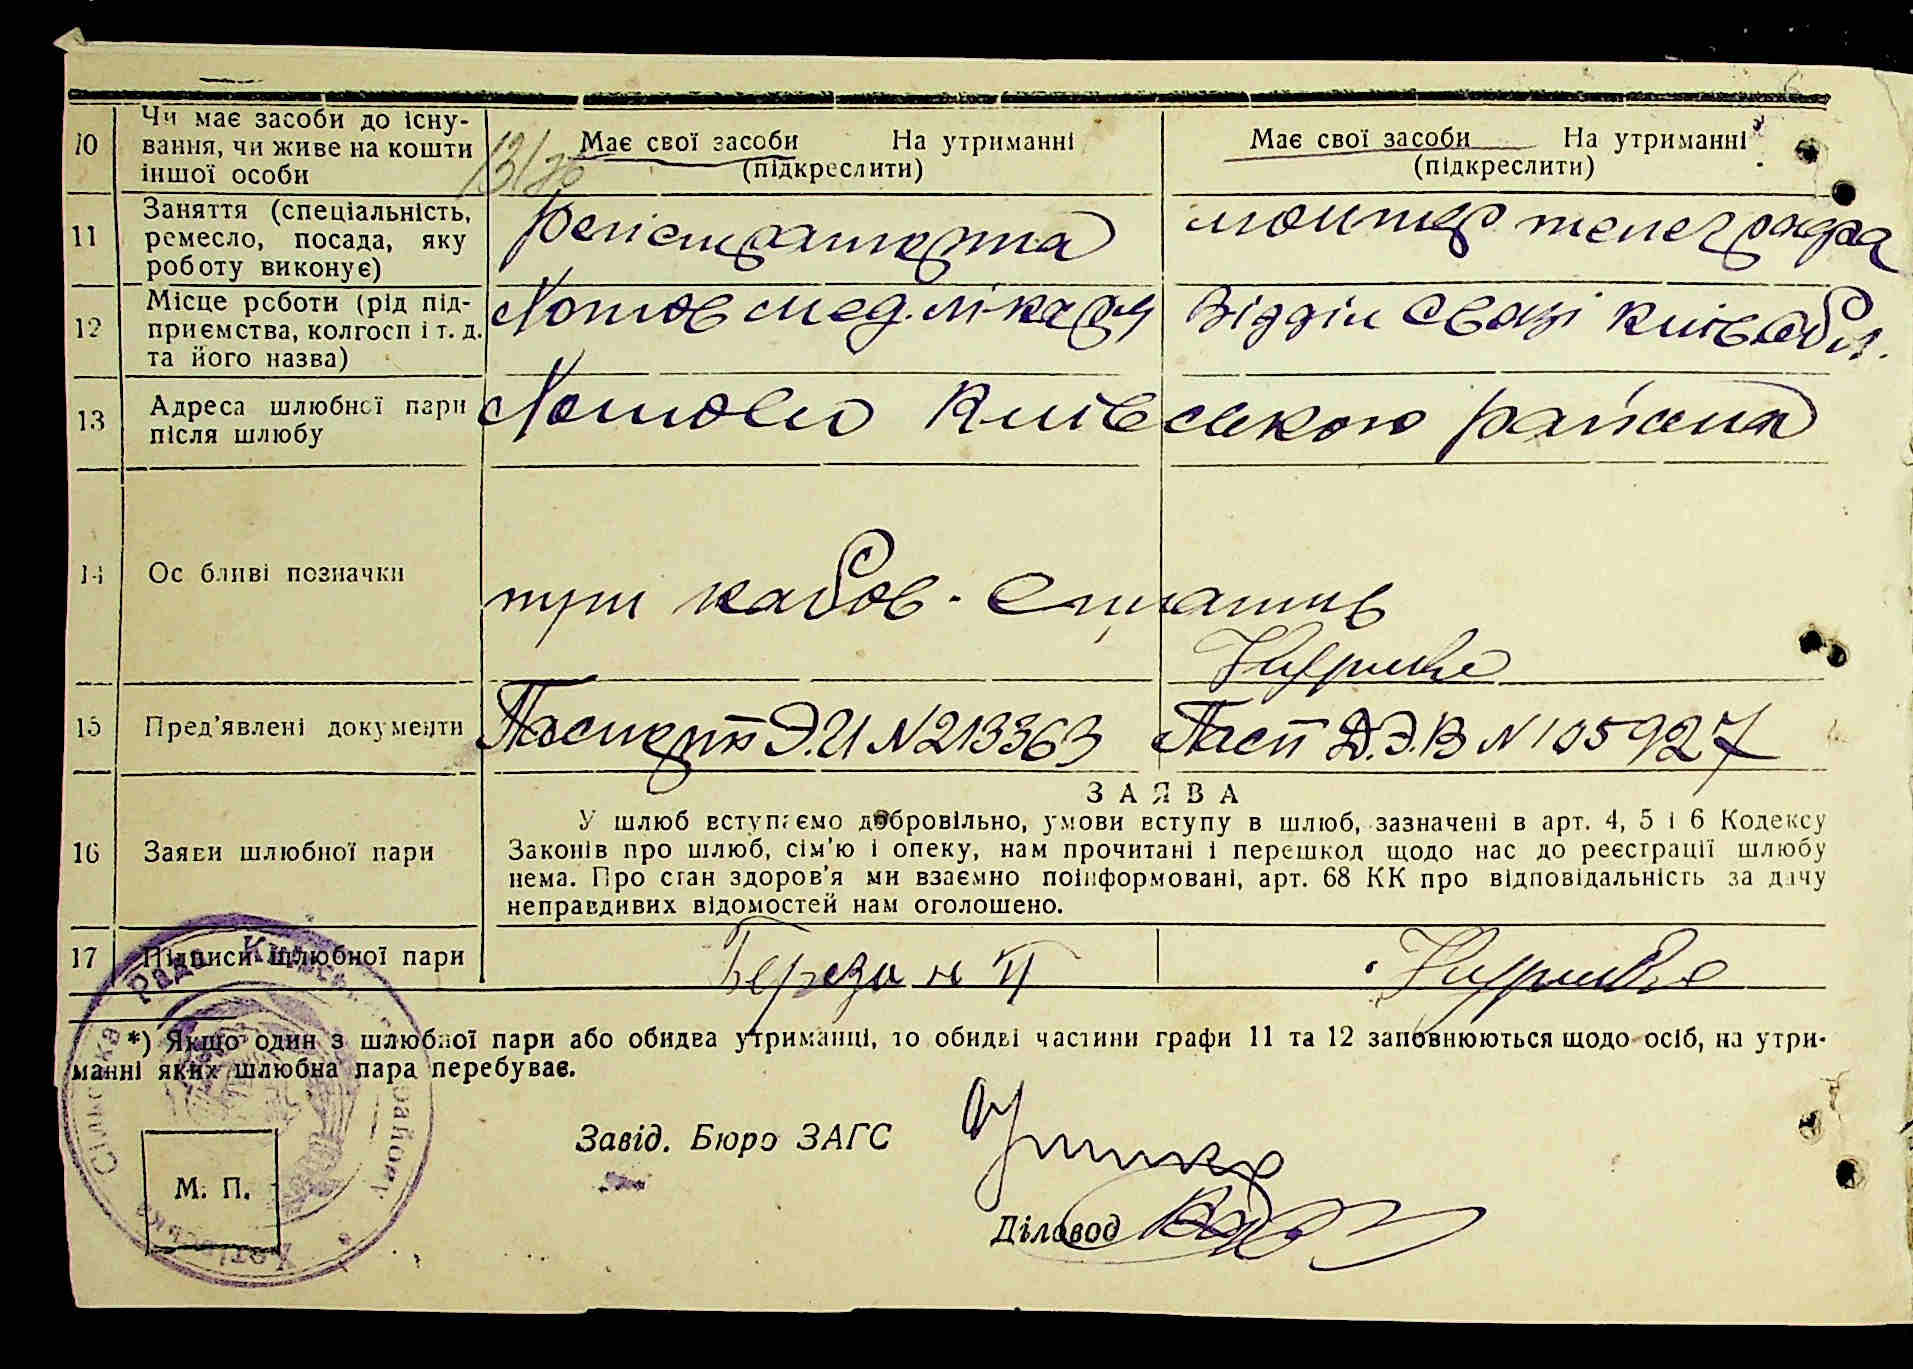 10 Чи має засоби до існу-
вання, чи живе на кошти
іншої особи
Має свої засоби На утриманні
(підкреслити)
Має свої засоби На утриманні
(підкреслити)
11 Заняття (спеціальність,
ремесло, посада, яку
роботу виконує)
монтер телеграфа
12 Місце роботи (рід під-
приємства, колгосп і т. д.
та його назва)
Відділ связі Київ обл.
13 Адреса шлюбної пари
після шлюбу
Київського району
14 Ос бливі позначки
три
15 Пред'явлені документи
Паспорт Э.И N 213363
Пасп Д.Э.В N 105927
16 Заяви шлюбної пари
ЗАЯВА
У шлюб вступаємо добровільно, умови вступу в шлюб, зазначені в арт. 4, 5 і 6 Кодексу
Законів про шлюб, сім'ю і опеку, нам прочитані і перешкод щодо нас до реєстрації шлюбу
нема. Про стан здоров'я ми взаємно поінформовані, арт. 68 КК про відповідальність за дачу
неправдивих відомостей нам оголошено.
17 Підписи шлюбної пари
*) Якщо один з шлюбної пари або обидва утриманці, то обидві частини графи 11 та 12 заповнюються щодо осіб, на утри-
манні яких шлюбна пара перебуває.
Завід. Бюро ЗАГС
М. П.
Діловод
Сільська Рада